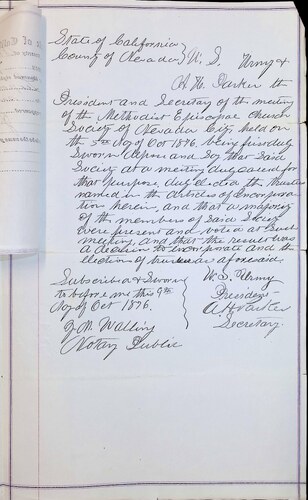 State of California }
County of Nevada } W. S. Urmy &
A. H. Parker the
President and Secretary of the meeting
of the Methodist Episcopal Church
Society of Nevada City, held on
the 5th day of Oct 1876, being first duly
Sworn depose and say that Said
Society at a meeting duly called for
that purpose duly elected the Trustees
named in the Articles of Incorporation
herein, and that a majority
of the members of Said Society
were present and voted at such
meeting, and that the result was
a decision to incorporate and the
election of trustees aforesaid
Subscribed & Sworn
to before me this 9th
day of Oct 1876.
J. M. Walling
Notary Public
W. S. Urmy
President
A. H. Parker
Secretary.